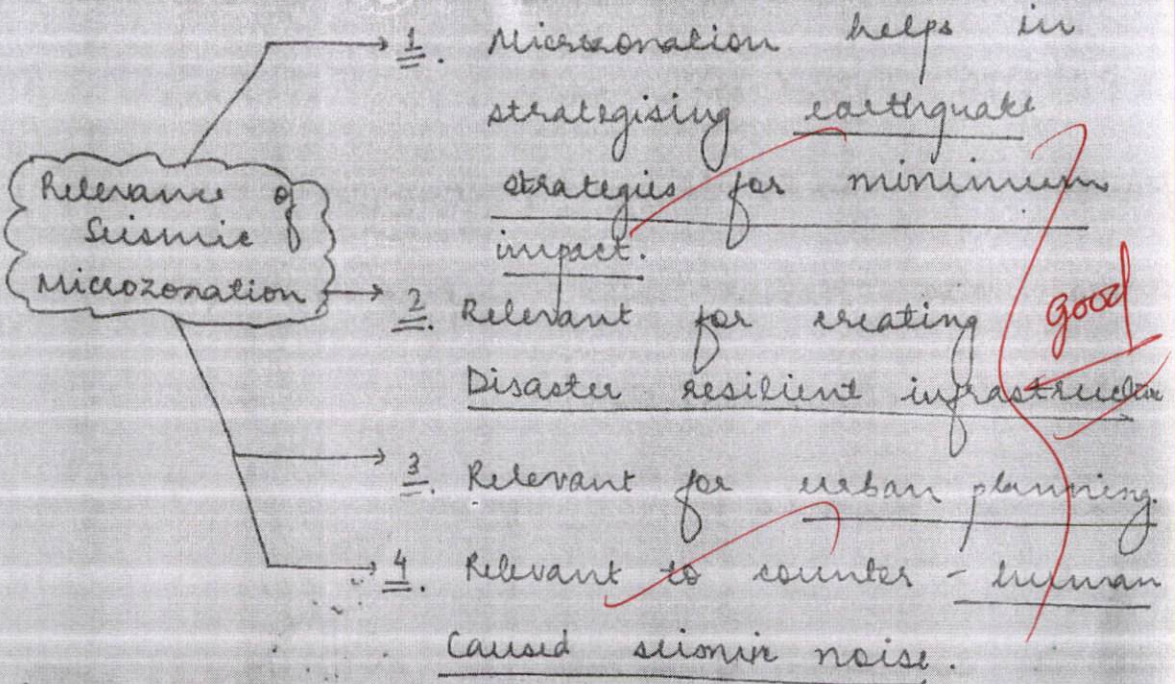 Relevance of
Seismic
Microzonation
1. Microzonation helps in
strategising earthquake
strategies for minimum
impact.
2. Relevant for creating
Disaster resilient infrastructure
3. Relevant for urban planning.
4. Relevant to counter - human
Caused seismic noise.
good